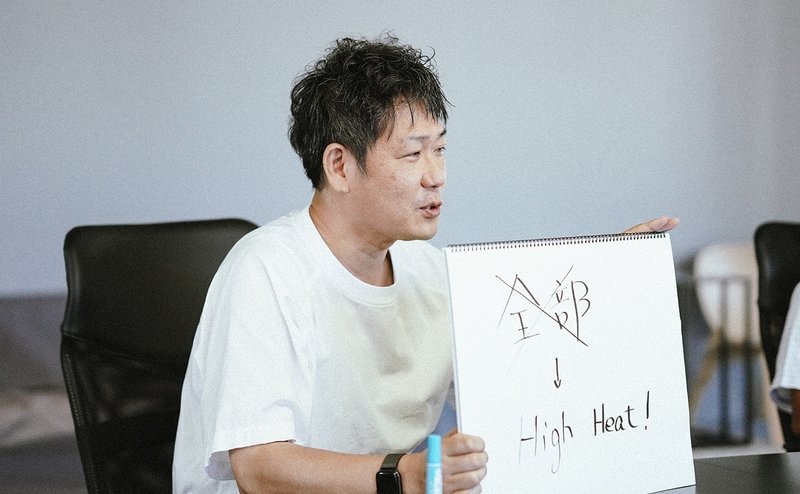 全部
↓
High Heat!